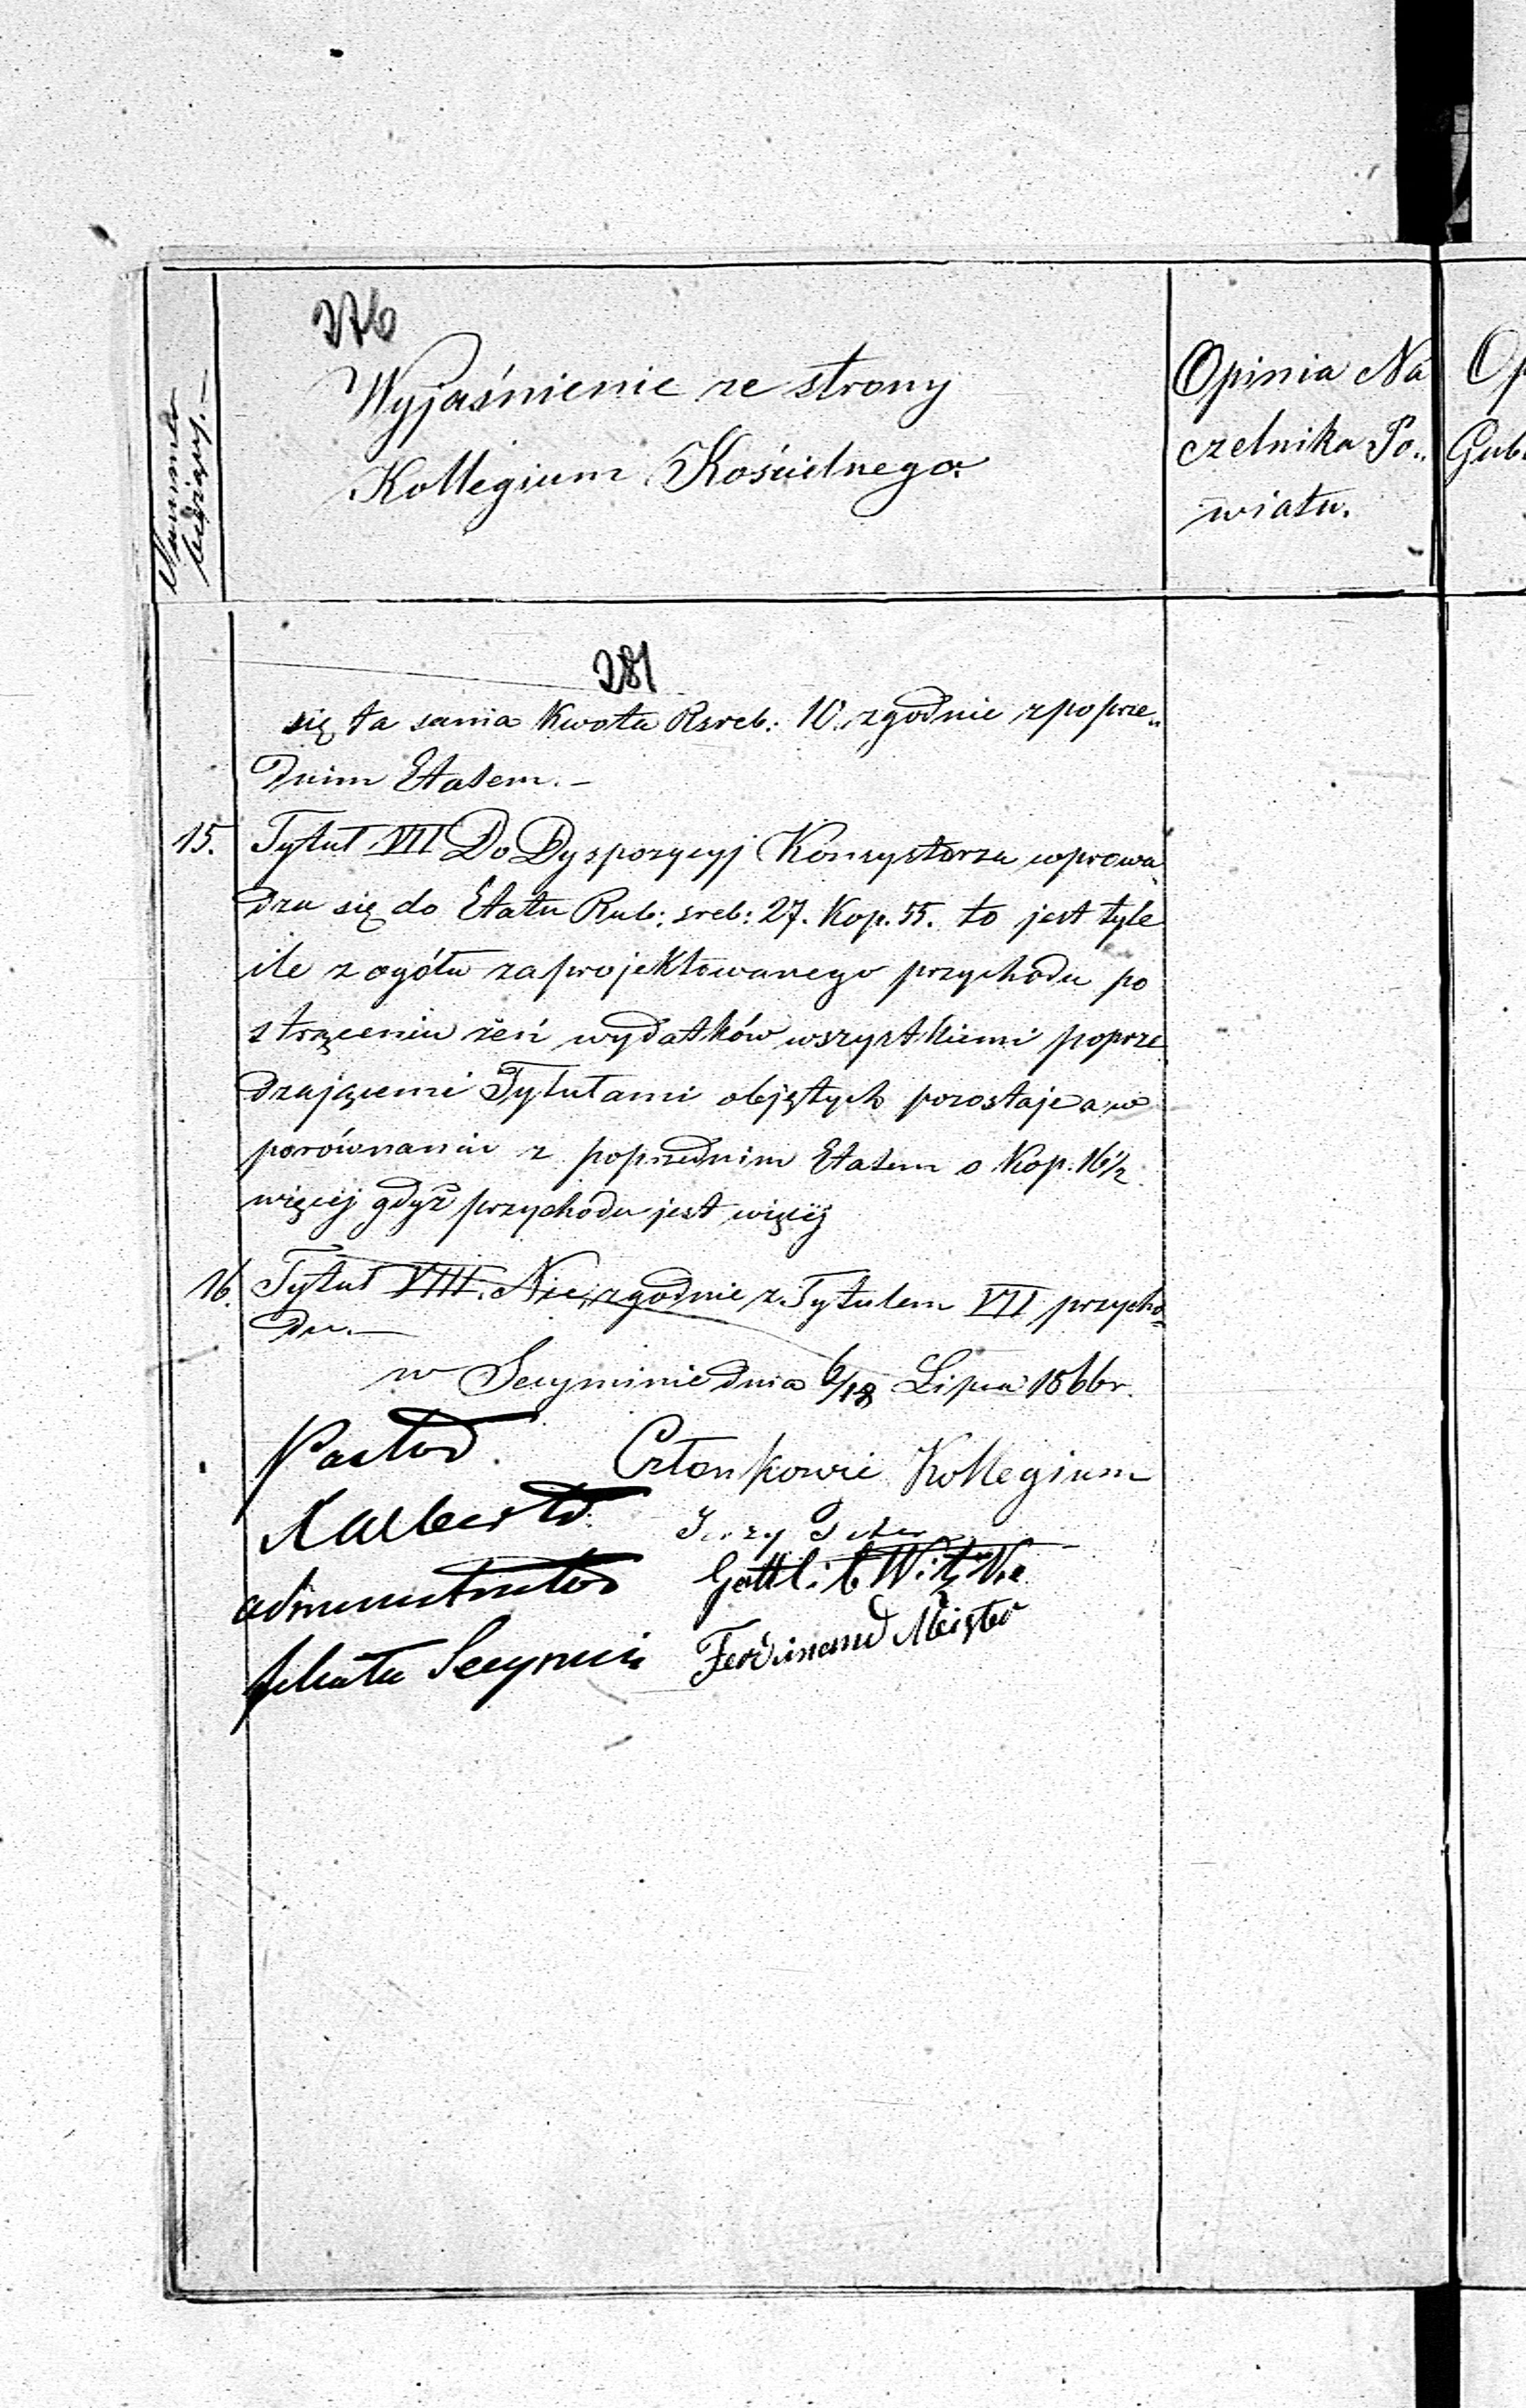 276
Numera
bieżący.—
Wyjaśnienie ze strony
Kollegium Kościelnego.
Opinia Na
czelnika Po„
wiatu.
Op
Gub
281
się ta sama Kwota Rsreb: 10. zgodnie z poprze„
dnim Etatem.—
15. Tytuł VII Do Dyspozycyj Konsystorza wprowa
dza się do Etatu Rub: sreb: 27. Kop. 55. to jest tyle
ile z ogółu zaprojektowanego przychodu po
strąceniu zeń wydatków wszystkiemi poprze
dzającemi Tytułami objętych pozostaje a w
porównaniu z poprzednim Etatem o Kop. 16½
więcej gdyż przychodu jest więcej
16. Tytuł VIII. Nic, zgodnie z Tytułem VII przycho„
du.—
w Secyminie dnia 6/18 Lipca 1866 r.
Pastor.
Członkowie Kollegium
Jerzy
administrator
Gottlib Witzke
filiału Secymin
Ferdinand Meister